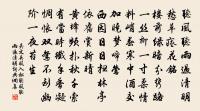 聽風聽雨過清明
愁草瘞花銘
樓前綠暗分攜路
一絲柳一寸柔情
料峭春寒中酒交
加曉夢啼鶯
西園日日掃林亭
依舊賞新晴黃蜂
頻撲鞦韆索有
當時纖手香凝
惆悵雙鴛不到幽
階一夜苔生
吳文英風入松聽風聽
雨過清明